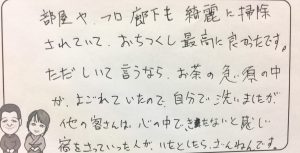 部屋や、フロ 廊下も 綺麗に掃除
されていて、おちつくし 最高に良かったです。
ただしいて言うなら、お茶の急須の中
が、よごれていたので、自分で洗いましたが
他の客さんは、心の中できたないと感じ
宿をさっていった人がいたとしたら、ざんねんです。